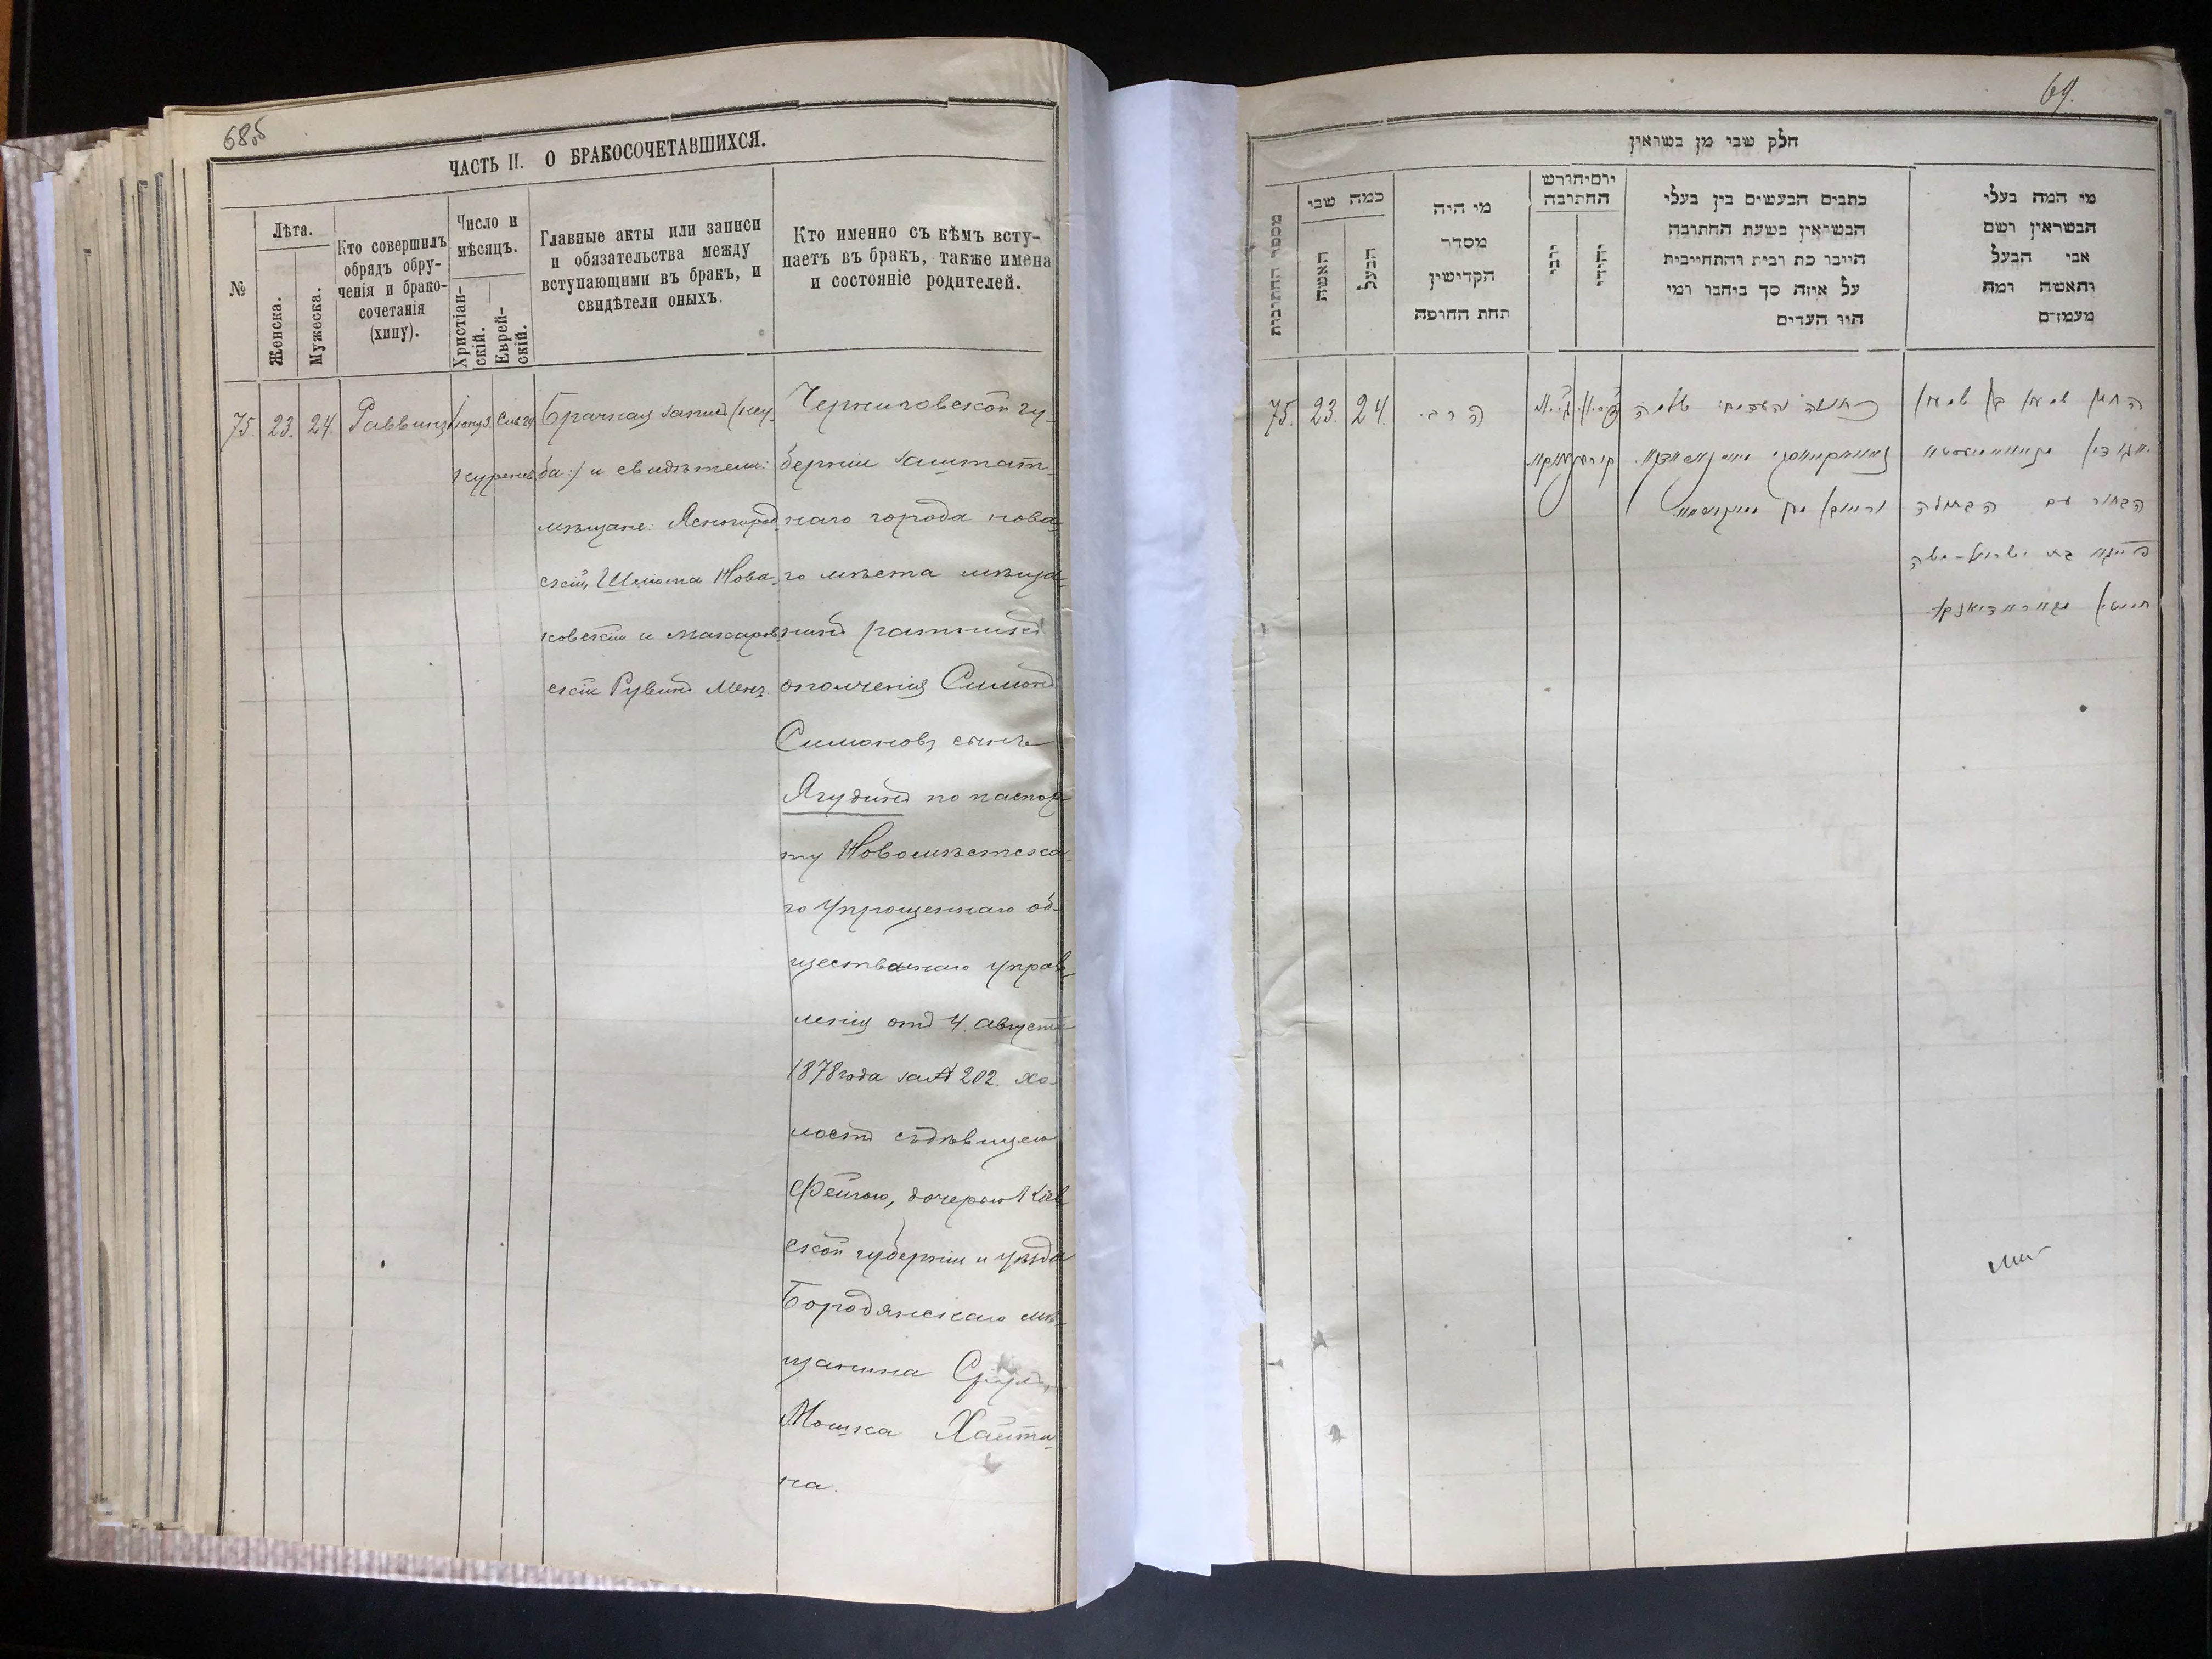 68об
ЧАСТЬ II. О БРАКОСОЧЕТАВШИХСЯ.
№
Лѣта.
Женска.
Мужеска.
Кто совершилъ
обрядъ обру-
ченія и брако-
сочетанія
(хипу).
Число и
мѣсяцъ.
Христіан-
скій.
Еврей-
скій.
Главные акты или записи
и обязательства между
вступающими въ бракъ, и
свидѣтели оныхъ.
Кто именно съ кѣмъ всту-
паетъ въ бракъ, также имена
и состояніе родителей.
75. 23. 24. Раввинъ
Брачная запись (кеу-
ба:) и свидѣтели:
мѣщане: Ясногород
скій, Шлiома Нова-
ковскій и Макаров
скій Рувинъ Менз.
Черниговской гу-
берніи заштат-
наго города Нова-
го мѣста мѣща-
нинъ ратникъ
ополченія Симонъ
Симоновъ сынъ
Ягудинъ по паспор
ту Новомѣстска-
го Упрощеннаго об-
щественнаго управ
ленія отъ 4. августа
1878 года за № 202. хо-
лостъ съ дѣвицею
Фейгою, дочерью Кіев
ской губерніи и уѣзда
Бородянскаго мѣ-
щанина Сруль
Мошка Хайти-
на.
69.
חלק שני מן נשואין
מספר החתונות
כמה שני
האשה
הבעל
מי היה
מסדר
הקדישין
תחת החופה
יום וחורש
החתונה
כתבים הנעשים בין בעלי
הנשואין בשעת החתונה
היינו כת ובית והתחייבית
על איזה סך ביחבו ומי
היו העדים
מי המה בעלי
הנשואין ושם
אבי הבעל
והאשה ומה
מעמדם
75. 23. 24. הרב
החתן שמעון בן שמעון
הבחור עם הבתולה
פייגא בת ישראל-משה